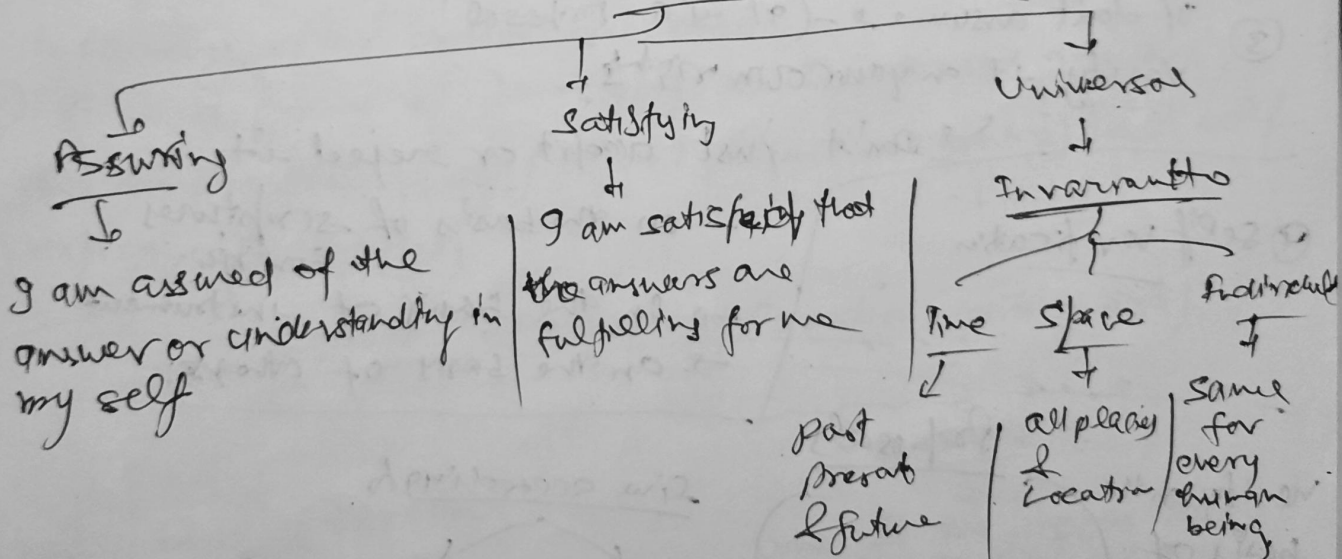 Assuring
I am assured of the
answer or understanding in
my self
Satisfying
I am satisfied that
the answers are
fulfilling for me
Universal
Invariant to
Time
past
present
& future
Space
all places
&
Location
Individual
Same
for
every
human
being